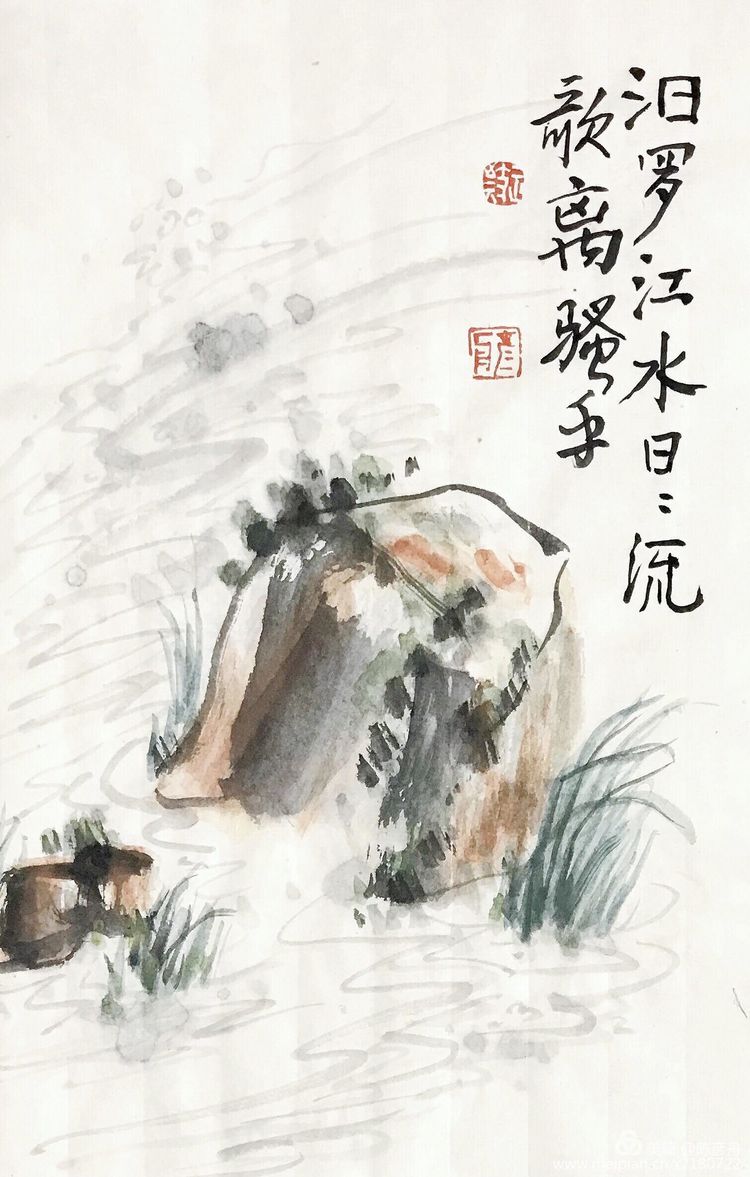 汨罗江水日〻流
歌离骚乎
美篇
www.meipian.cn/c/180722